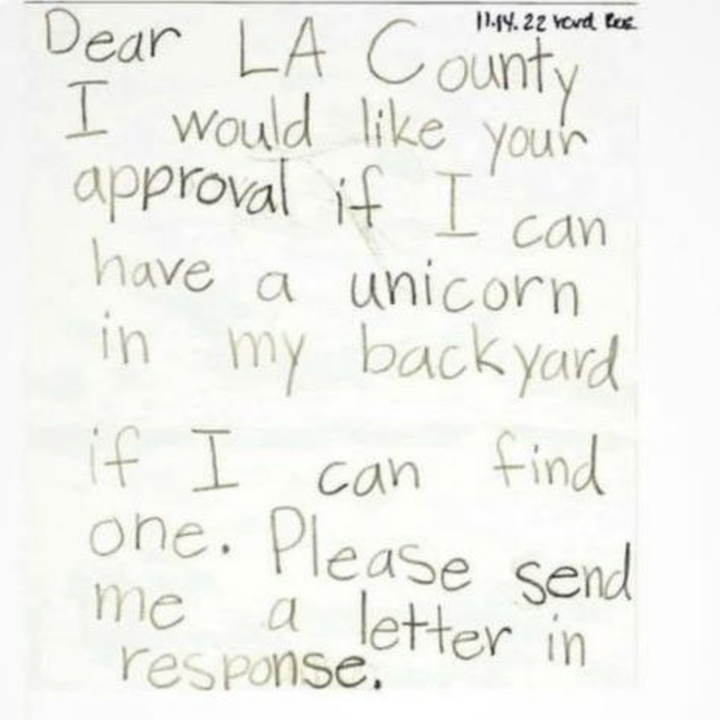 11.14.22
Dear LA County
I would like your
approval if I can
have a unicorn
in my backyard
if I can find
one. Please send
me a letter in
response.